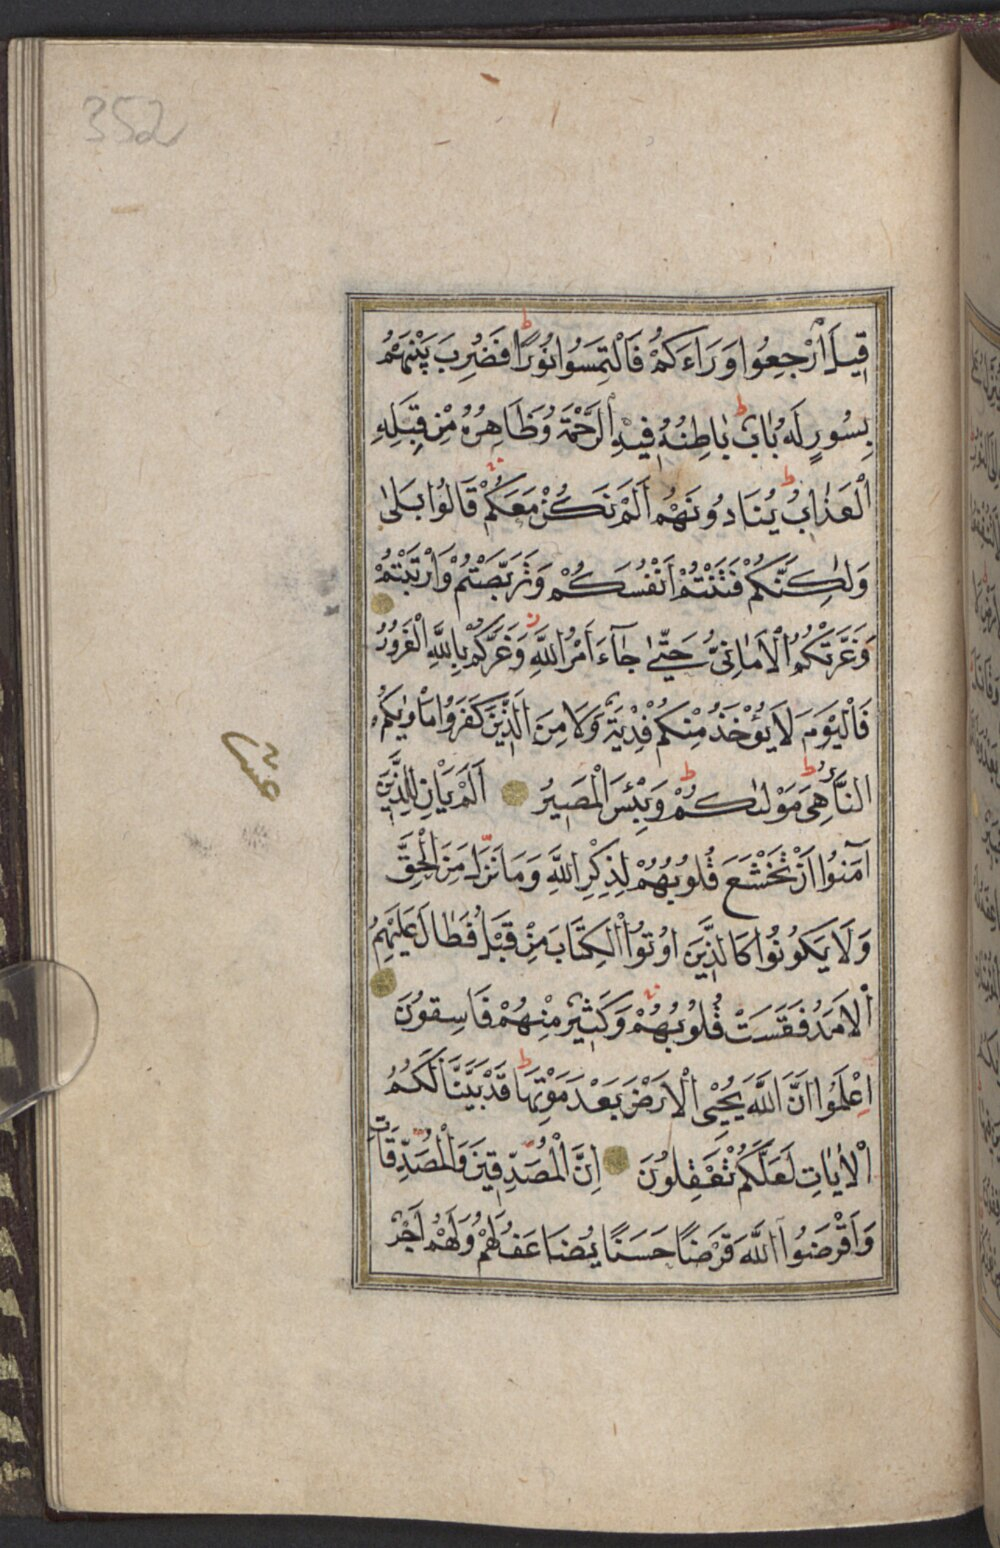 352
قِيلَ ارْجِعُوا وَرَاءَكُمْ فَالْتَمِسُوا نُورًا فَضُرِبَ بَيْنَهُمْ
بِسُورٍ لَهُ بَابٌ بَاطِنُهُ فِيهِ الرَّحْمَةُ وَظَاهِرُهُ مِنْ قِبَلِهِ
الْعَذَابُ يُنَادُونَهُمْ أَلَمْ نَكُنْ مَعَكُمْ قَالُوا بَلَىٰ
وَلٰكِنَّكُمْ فَتَنْتُمْ أَنْفُسَكُمْ وَتَرَبَّصْتُمْ وَارْتَبْتُمْ
وَغَرَّتْكُمُ الْأَمَانِيُّ حَتّٰى جَآءَ أَمْرُ اللَّهِ وَغَرَّكُمْ بِاللَّهِ الْغَرُورُ
فَالْيَوْمَ لَا يُؤْخَذُ مِنْكُمْ فِدْيَةٌ وَلَا مِنَ الَّذِينَ كَفَرُوا مَأْوٰيكُمُ
النَّارُ هِيَ مَوْلٰيكُمْ وَبِئْسَ الْمَصِيرُ أَلَمْ يَأْنِ لِلَّذِينَ
عشر
آمَنُوا أَنْ تَخْشَعَ قُلُوبُهُمْ لِذِكْرِ اللَّهِ وَمَا نَزَلَ مِنَ الْحَقِّ
وَلَا يَكُونُوا كَالَّذِينَ أُوتُوا الْكِتَابَ مِنْ قَبْلُ فَطَالَ عَلَيْهِمُ
الْأَمَدُ فَقَسَتْ قُلُوبُهُمْ وَكَثِيرٌ مِنْهُمْ فَاسِقُونَ
اِعْلَمُوا أَنَّ اللَّهَ يُحْيِي الْأَرْضَ بَعْدَ مَوْتِهَا قَدْ بَيَّنَّا لَكُمُ
الْاٰيَاتِ لَعَلَّكُمْ تَعْقِلُونَ إِنَّ الْمُصَّدِّقِينَ وَالْمُصَّدِّقَاتِ
وَأَقْرَضُوا اللَّهَ قَرْضًا حَسَنًا يُضَاعَفُ لَهُمْ وَلَهُمْ أَجْرٌ